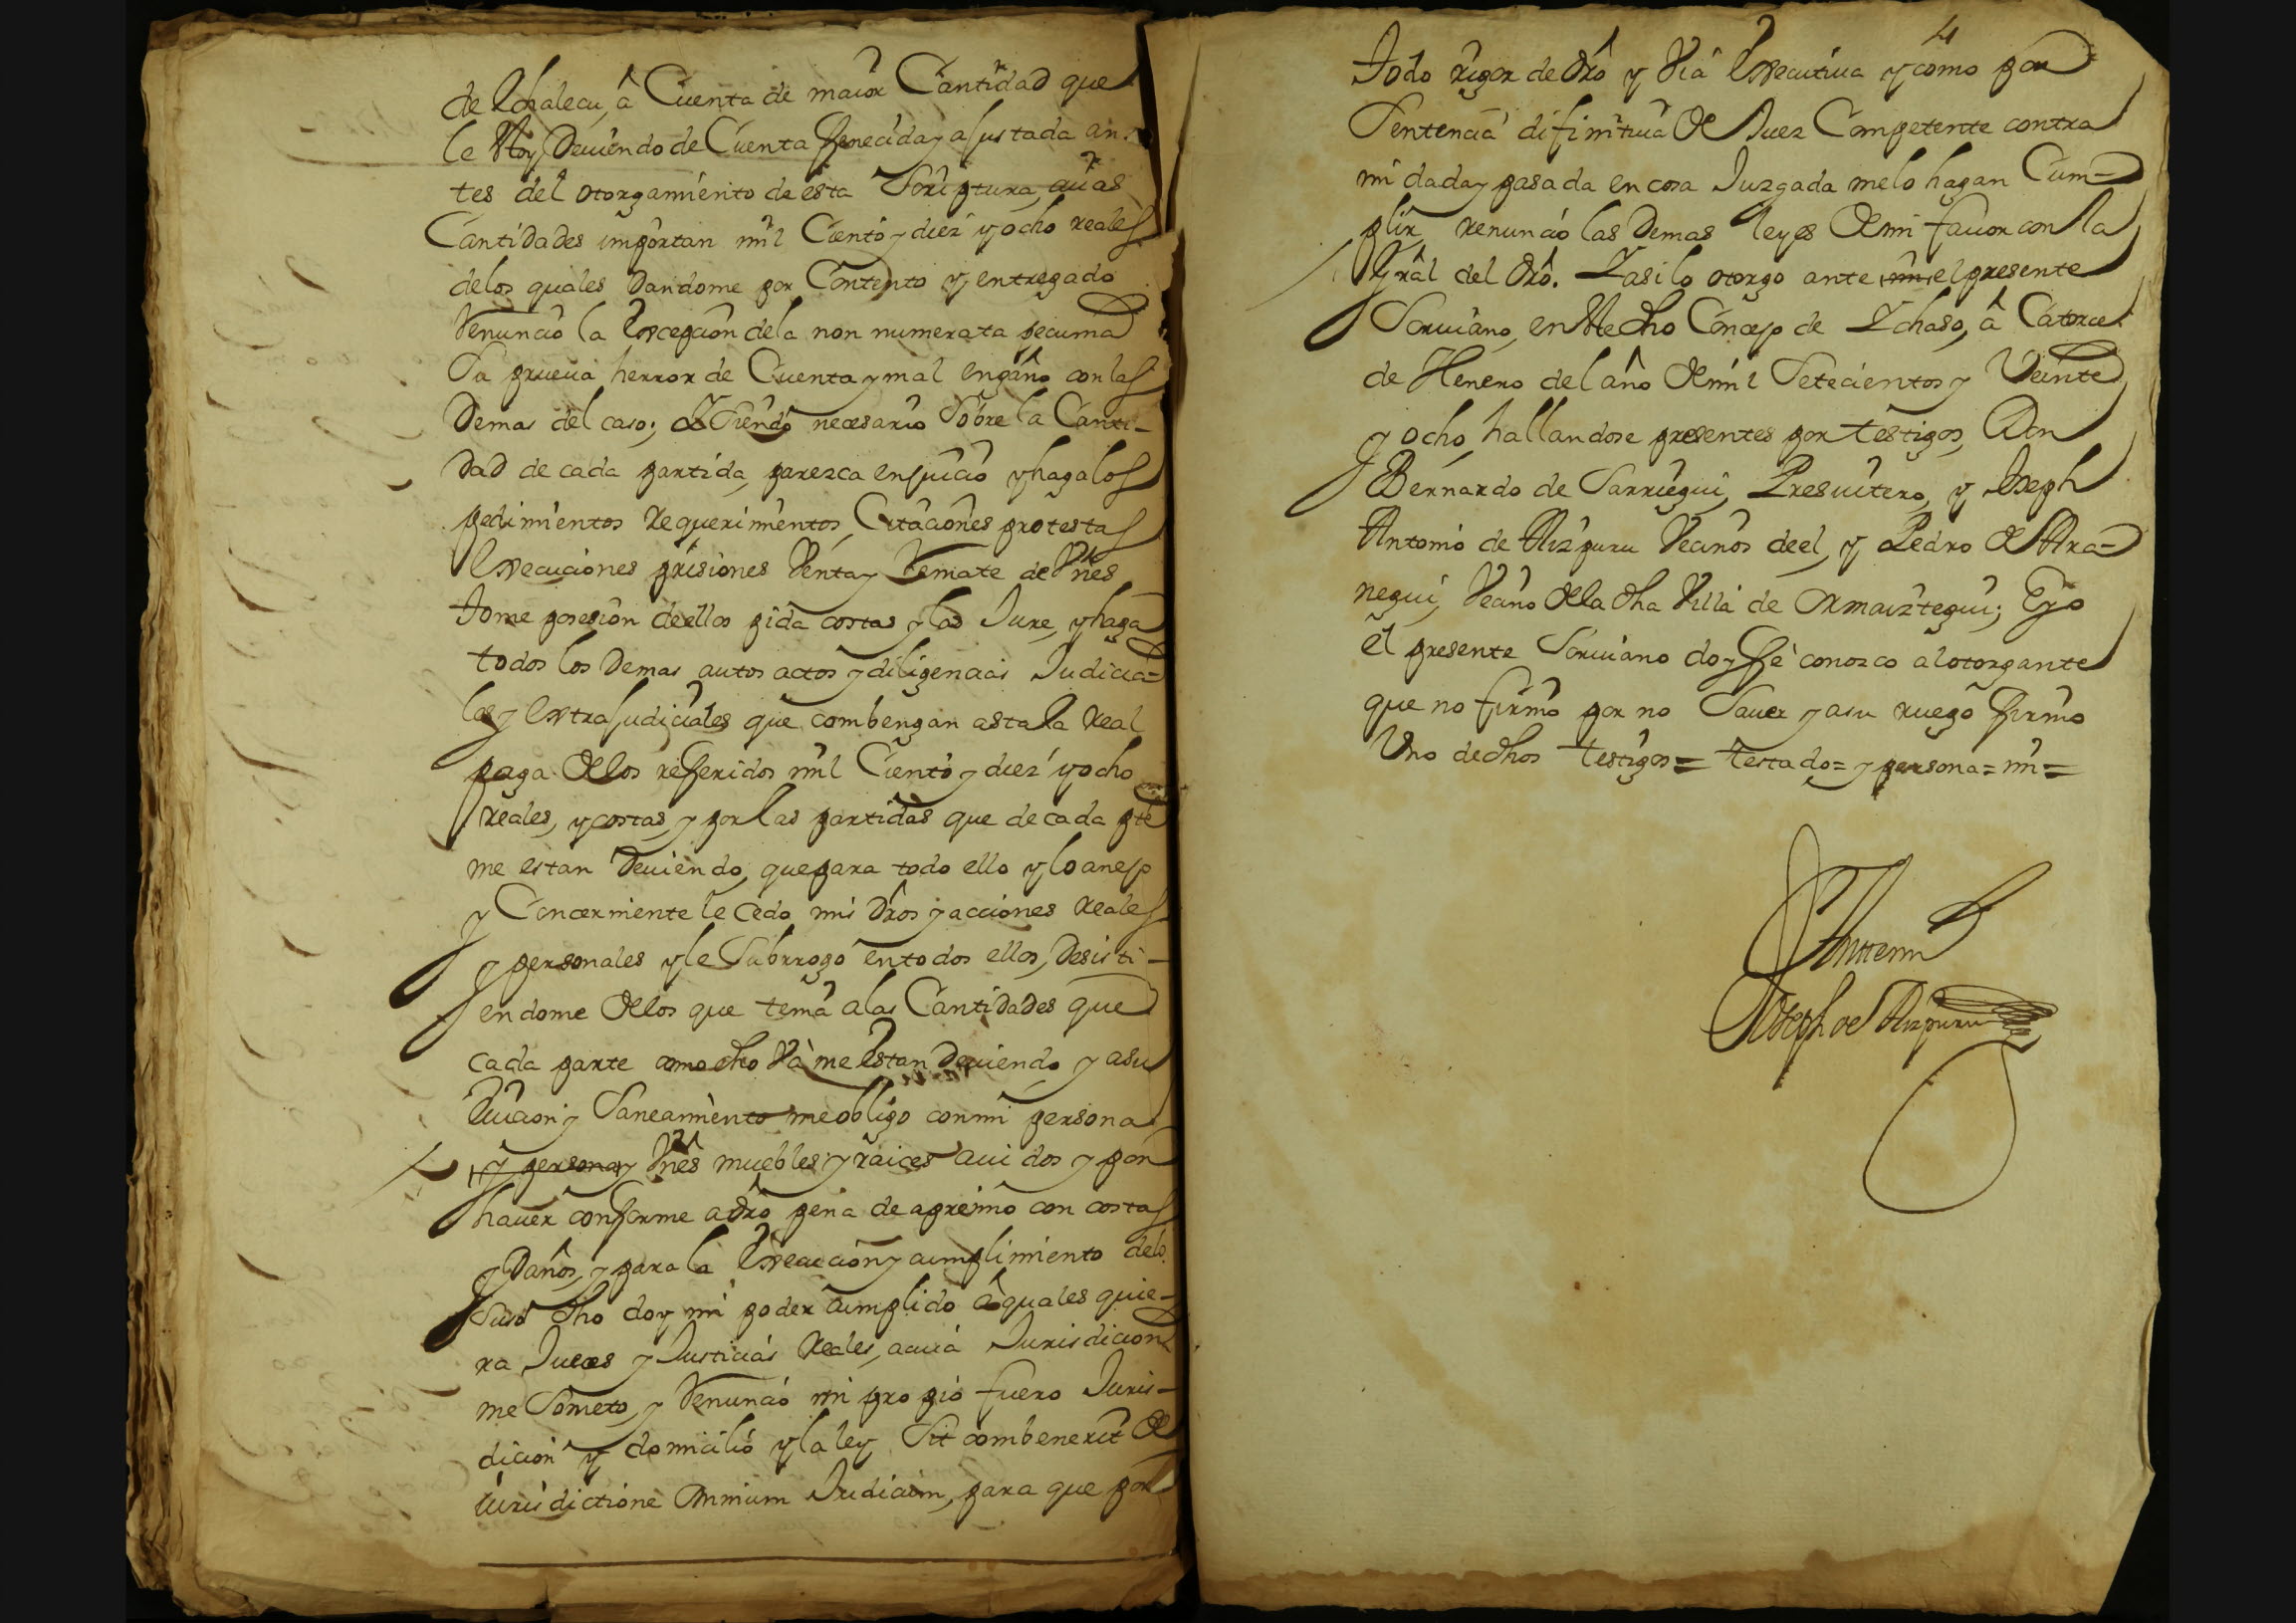 de Echalecu, â Cuenta de maior Cantidad que
le Stoy Deuiendo de Cuenta fenecida y ajustada an-
tes del otorgamiento de esta Scriptura, cuias
Cantidades importan mil Ciento y diez y ocho reales
delos quales Dandome por Contento y entregado
Renuncio la Excepcion dela non numerata pecunia
Su prueua herror de Cuenta y mal engaño con las
Demas del caso; Y Siendo necesario Sobre la Canti-
Dad de cada partida, parezca en juicio y haga los
pedimientos Requerimentos, Citaciones protestas
Execuciones prisiones Venta y Remate de Vnes
Tome posesion de ellos pida costas y las Jure, y haga
todos los Demas autos actos y diligencias Judicia-
les y Extrajudiciales que combengan asta la Real
paga de los referidos mil Ciento y diez y ocho
Reales, y costas y por las partidas que de cada pte
me estan Deuiendo, que para todo ello y lo anejo
y Concerniente le Cedo mis dros y acciones Reales
y personales y le Subrrogo en todos ellos, Desisti-
endome de los que tenia a las Cantidades que
cada parte como dho Va me Estan Deuiendo y a su
Euicion y Saneamiento me obligo con mi persona
y persona y Vnes muebles y raices auidos y por
hauer conforme a dro pena de apremio con costas
y Daños, y para la Execucion y cumplimiento delo
Suso dho doy mi poder cumplido â quales quie-
ra Jueces y Justicias Reales, a cuia Jurisdicion
me Someto, y Renuncio mi propio fuero Juris-
dicion y domicilio y la ley Sit combenerit de
iurisdictione Omnium Judicum, para que por
4
Todo rigor de dro y Via Executiua y como por
Sentencia difinitiua de Juez Competente contra
mi dada y pasada en cosa Juzgada me lo hagan Cum-
plir, renuncio las Demas leyes de mi fauor con la
Gral del dro. Y asi lo otorgo ante mi el presente
Scriuano, en Ste dho Concejo de Ychaso, â Catorce
de Henero del año de mil Setecientos y Veinte
y ocho, hallandose presentes por testigos, Don
Bernardo de Sarriegui, Presuitero, y Joseph
Antonio de Aizpuru Vecinos de el, y Pedro de Ara-
negui, Vecino de la dha Villa de Ormaiztegui; E yo
el presente Scriuano doy fe conozco al otorgante
que no firmo por no Sauer y a su ruego firmo
Vno de dhos testigos = testado = y persona = mi =
Ante mi
Joseph de Aizpuru